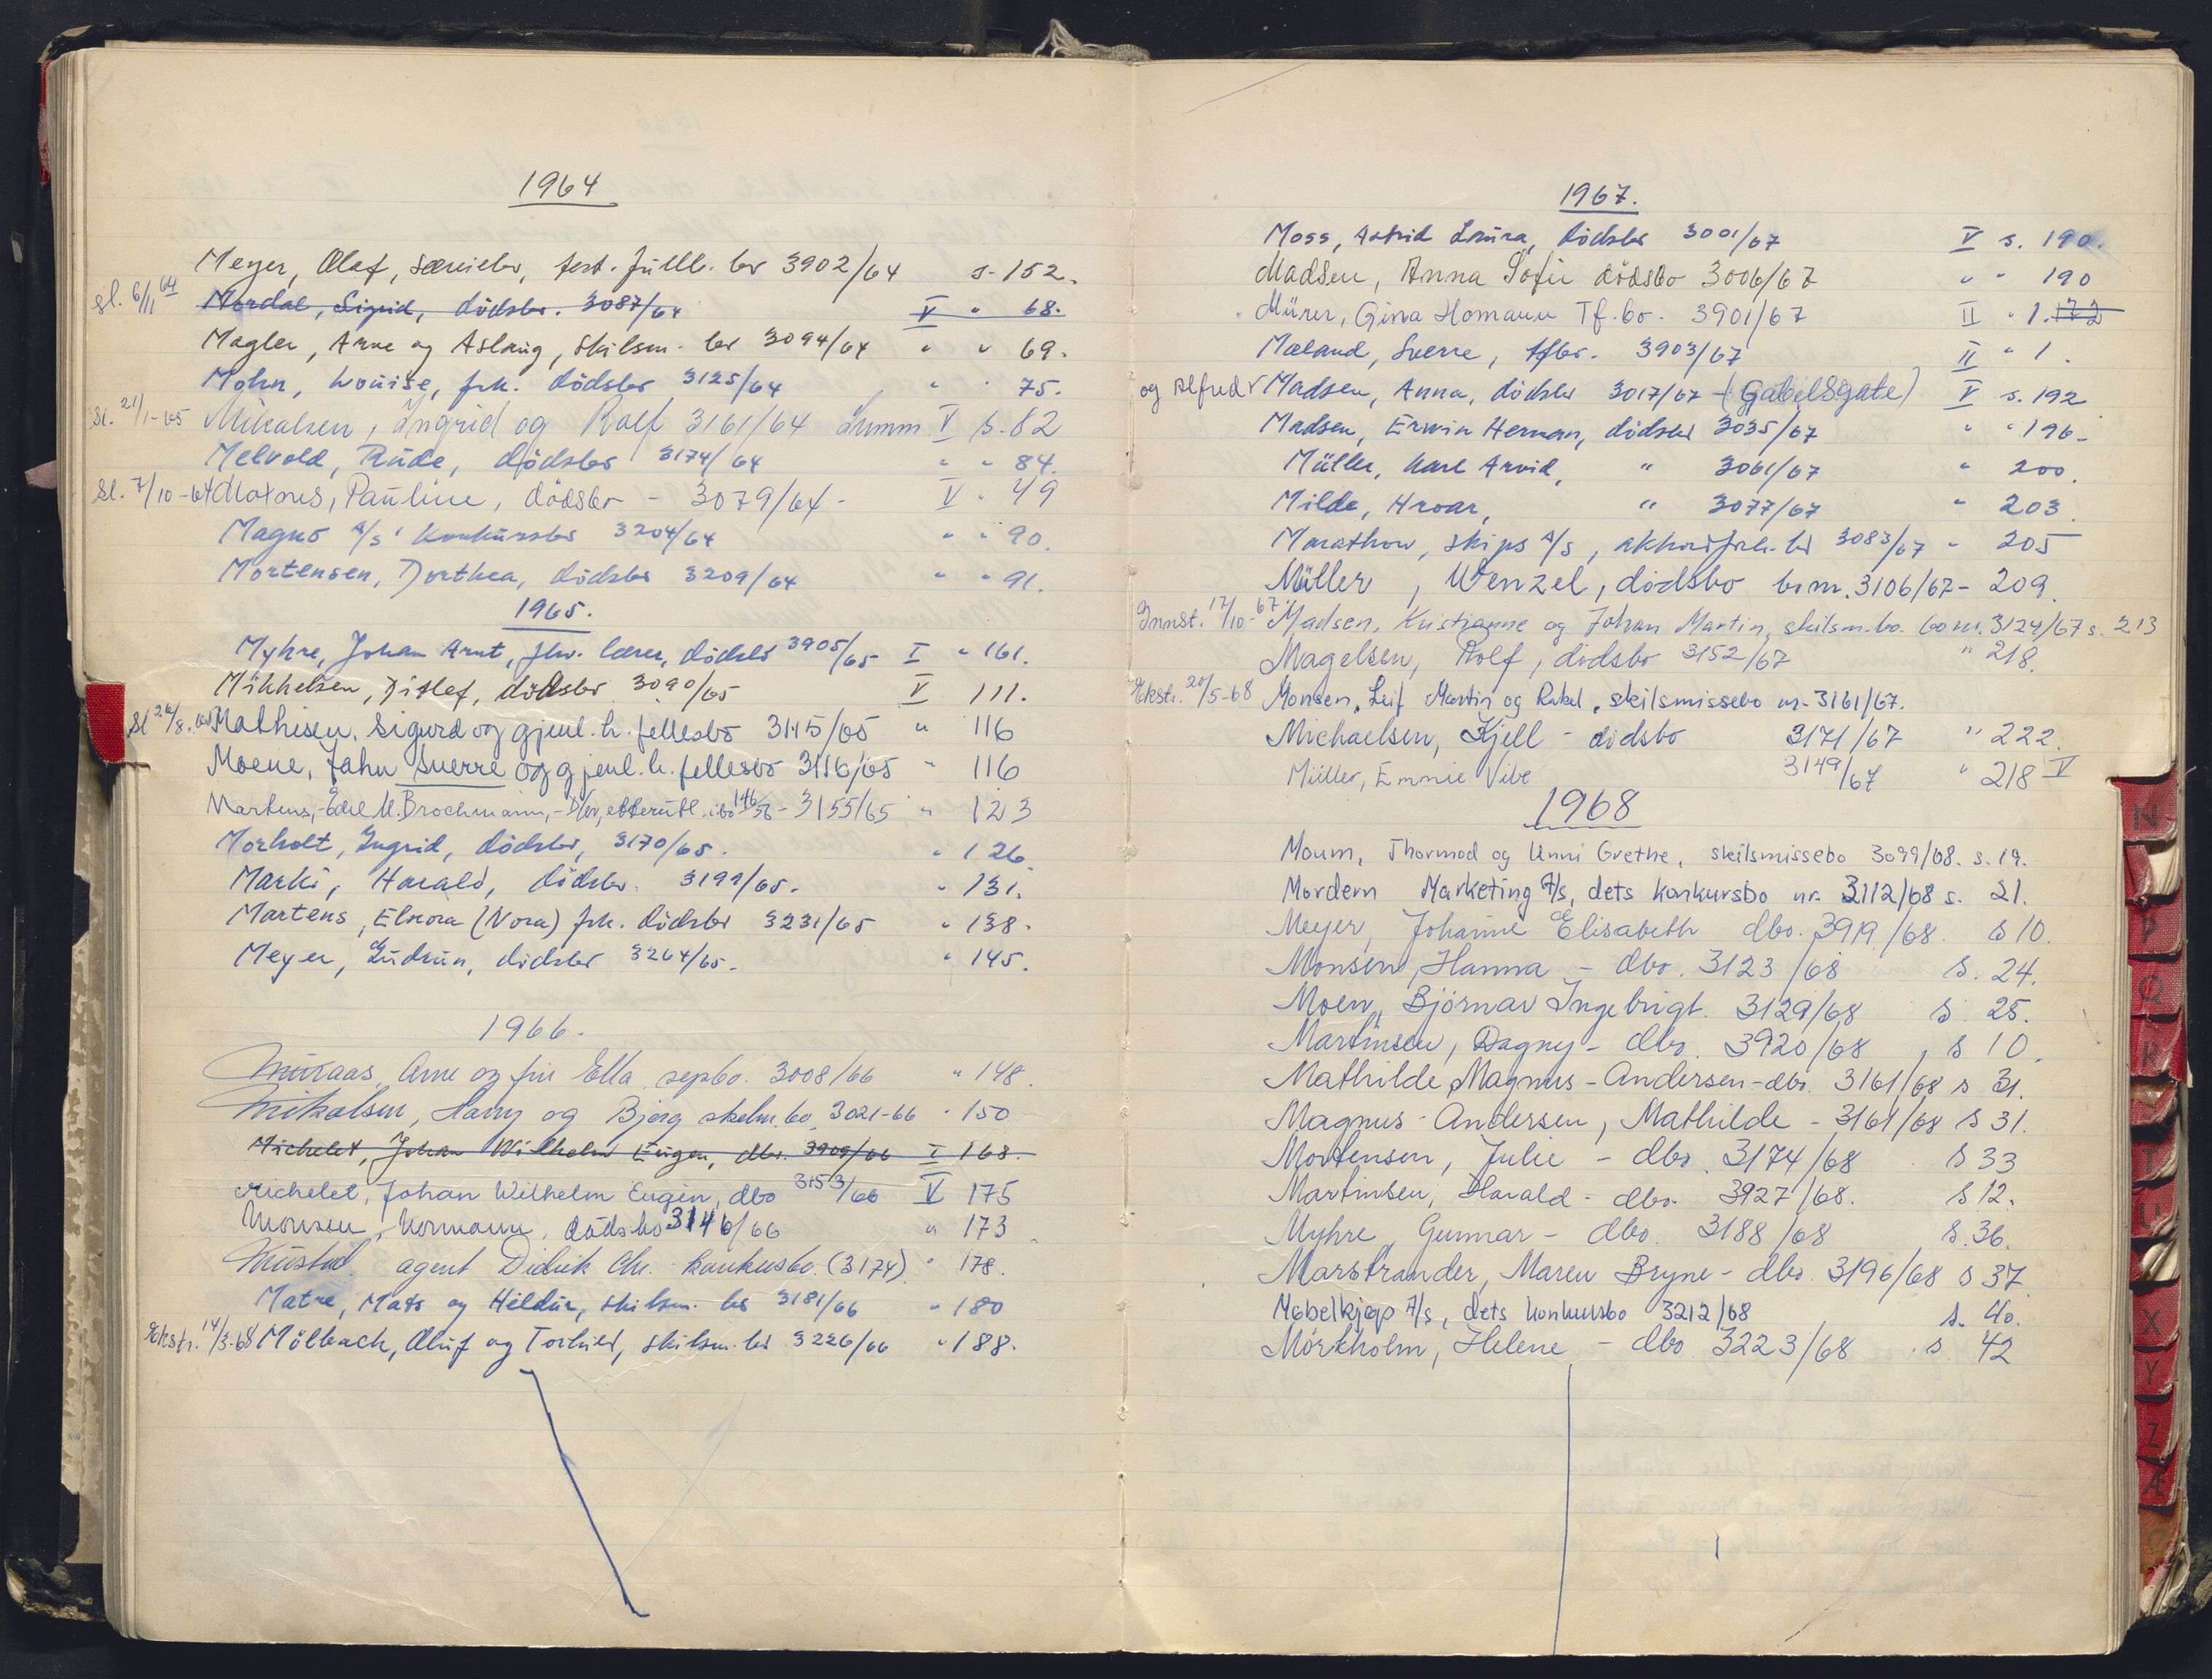 1964
Meyer, Olaf, særeiebo, test. fullb. bo 3902/64 s. 152.
sl. 6/11 64 Mordal, Sigrid, dödsbo. 3087/64 V " 68.
Magler, Arne og Aslaug, skilsm. bo 3094/64 " " 69.
Mohn, Louise, frk. dödsbo 3125/64 " " 75.
sl. 21/1-65 Mikalsen, Ingrid og Rolf 3161/64 V s. 82
Melvold, Rude, dödsbo 3174/64 " " 84.
sl. 7/10-64 Moxnes, Pauline, dödsbo - 3079/64 - V " 49
Magno A/S' konkursbo 3204/64 " " 90.
Mortensen, Dorthea, dödsbo 3209/64 " " 91.
1965.
Myhre, Johan Arnt, fhv. lærer, dödsbo 3905/65 I " 161.
Mikkelsen, Ditlef, dödsbo 3090/65 V 111.
sl 26/8. 65 Mathisen, Sigurd og gjenl. h. fellesbo 3115/65 " 116
Moene, Jahn Sverre og gjenl. h. fellesbo 3116/65 " 116
Martens, - Edel M. Brochmann, - etterutl. i bo 146/56 - 3155/65 " 123
Morholt, Ingrid, dödsbo, 3170/65. " 126.
Marki, Harald, dödsbo. 3199/65. " 131.
Martens, Elnora (Nora) frk. dödsbo 3231/65 " 138.
Meyer, Gudrun, dödsbo 3264/65. " 145.
1966.
Muraas, Arne og fru Ella sepbo. 3008/66 " 148.
Mikalsen, Harry og Bjørg skilsm. bo 3021-66 " 150
Michelet, Johan Wilhelm Eugen, dbo. 3909/66 I 168.
Michelet, Johan Wilhelm Eugen, dbo 3153/66 V 175
Monsen, Normann, dødsbo 3146/66 " 173
Mustad agent Didrik Chr. konkursbo. (3174) " 178.
Matre, Mats og Hildur, skilsm. bo 3181/66 " 180
Ekstr. 14/3-68 Mölbach, Oluf og Torhild, skilsm. bo 3226/66 " 188.
1967.
Moss, Astrid Laura, dödsbo 3001/67 V s. 190.
Madsen, Anna Sofie dödsbo 3006/67 " " 190
Mürer, Gina Homann Tf. bo. 3901/67 II " 1. 172
Mæland, Sverre, tfbo. 3903/67 II " 1.
og Alfred Madsen, Anna, dödsbo 3017/67 - (Gabelsgate) V s. 192
Madsen, Erwin Herman, dödsbo 3035/67 " " 196.
Müller, Karl Arvid, " 3061/67 " 200.
Milde, Hroar, " 3077/67 " 203.
Marathon, skips A/S, akkordforh. bo 3083/67 " 205
Müller, Wenzel, dödsbo bo nr. 3106/67 - 209.
Innst. 17/10-67 Madsen, Kristianne og Johan Martin, skilsm. bo. bo nr. 3124/67 s. 213
Magelsen, Rolf, dödsbo 3152/67 " 218.
Ekstr. 20/5-68 Monsen, Leif Martin og Rakel, skilsmissebo nr. 3161/67.
Michaelsen, Kjell - dödsbo 3171/67 " 222.
Müller, Emmie Vibe 3149/67 " 218 V
1968
Moum, Thormod og Unni Grethe, skilsmissebo 3099/68. s. 19.
Mordern Marketing A/S, dets konkursbo nr. 3112/68 s. 21.
Meyer, Johanne Elisabeth dbo. 3919/68. s 10.
Monsen, Hanna - dbo. 3123/68 s. 24.
Moen, Björnar Ingebrigt. 3129/68 s. 25.
Martinsen, Dagny - dbo. 3920/68, s 10.
Mathilde Magnus-Andersen - dbo. 3161/68 s 31.
Magnus-Andersen, Mathilde - 3161/68 s 31.
Mortensen, Julie - dbo. 3174/68 s 33
Martinsen, Harald - dbo. 3927/68. s 12.
Myhre, Gunnar - dbo. 3188/68 s. 36.
Marstrander, Maren Bryne - dbo. 3196/68 s 37
Møbelkjøp A/S, dets konkursbo 3212/68 s. 40.
Mörkholm, Helene - dbo 3223/68 s 42
N
P
Q
R
T
U
X
Y
Z
Æ